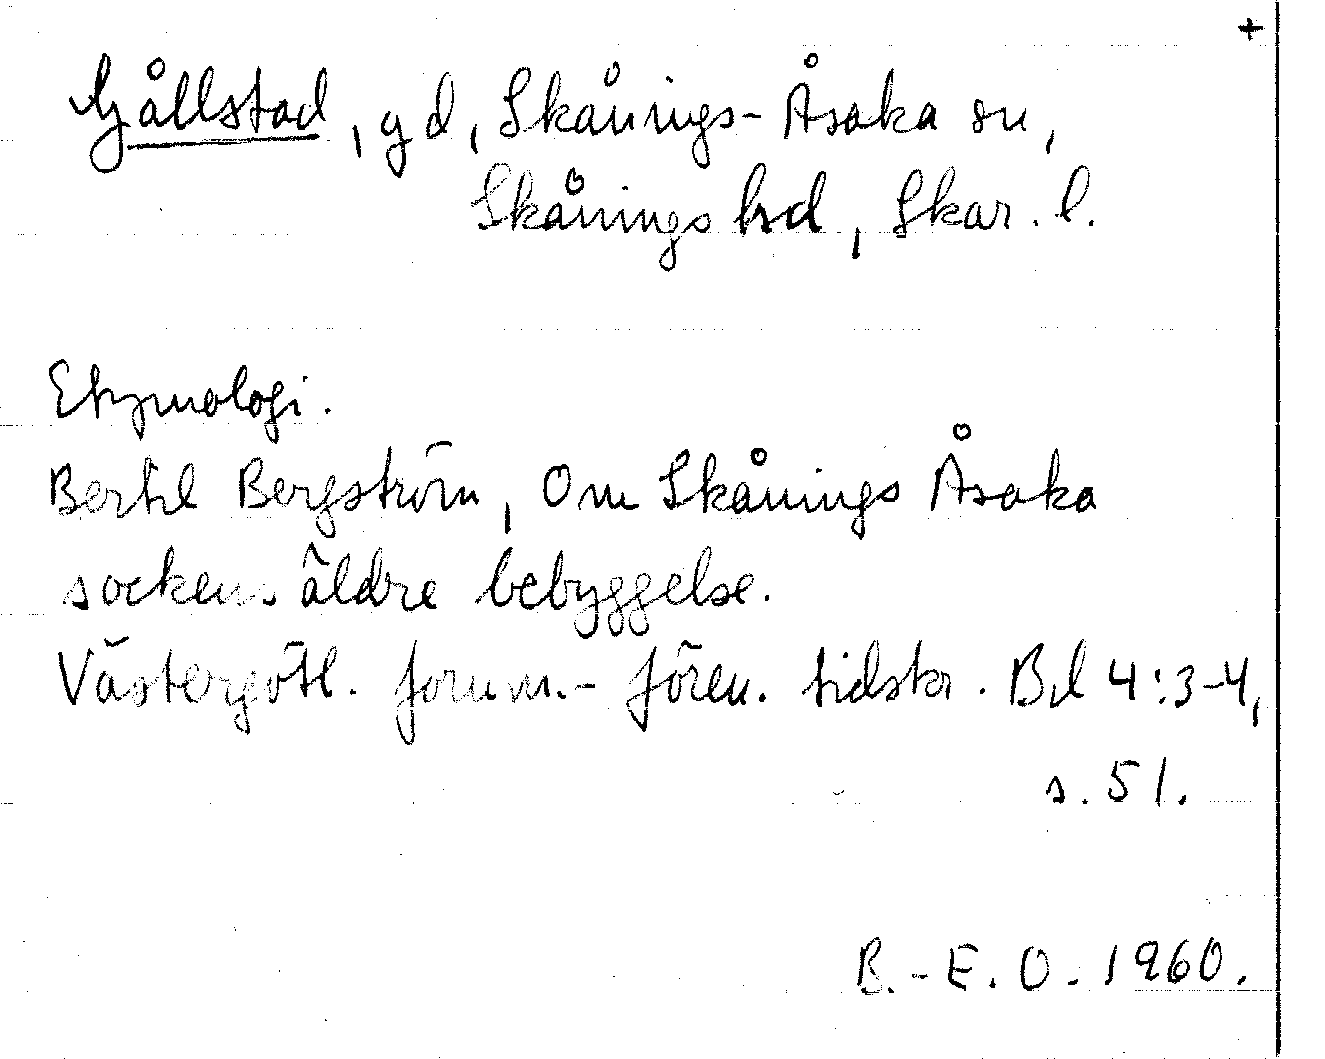 +
Gållstad, gd, Skånings-Åsaka sn,
Skånings hd, Skar. l.
Etymologi.
Bertil Bergström, Om Skånings Åsaka
sockens äldre bebyggelse.
Västergötl. fornm.-fören. tidskr. Bd 4:3-4,
s. 51.
B.-E. O. 1960.